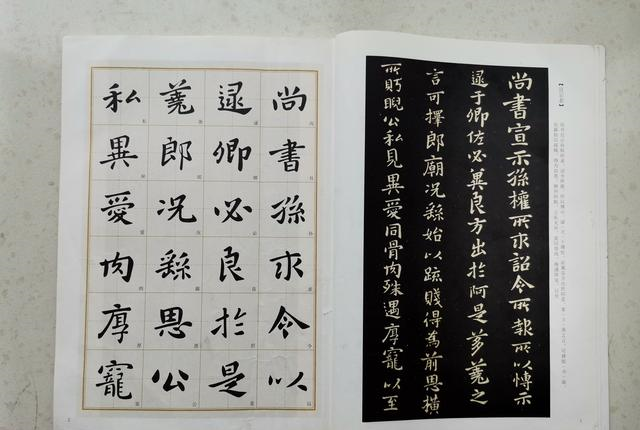 【宣示表】
尚書宣示孫權所求詔令所報所以博示
逮于卿佐必冀良方出於阿是芻蕘之
言可擇郎廟況繇始以疏賤得為前恩橫
所眄睨公私見異愛同骨肉殊遇厚寵以至
尚書孫求令以
逮卿必良於是
蕘郎況繇恩公
私異愛肉厚寵